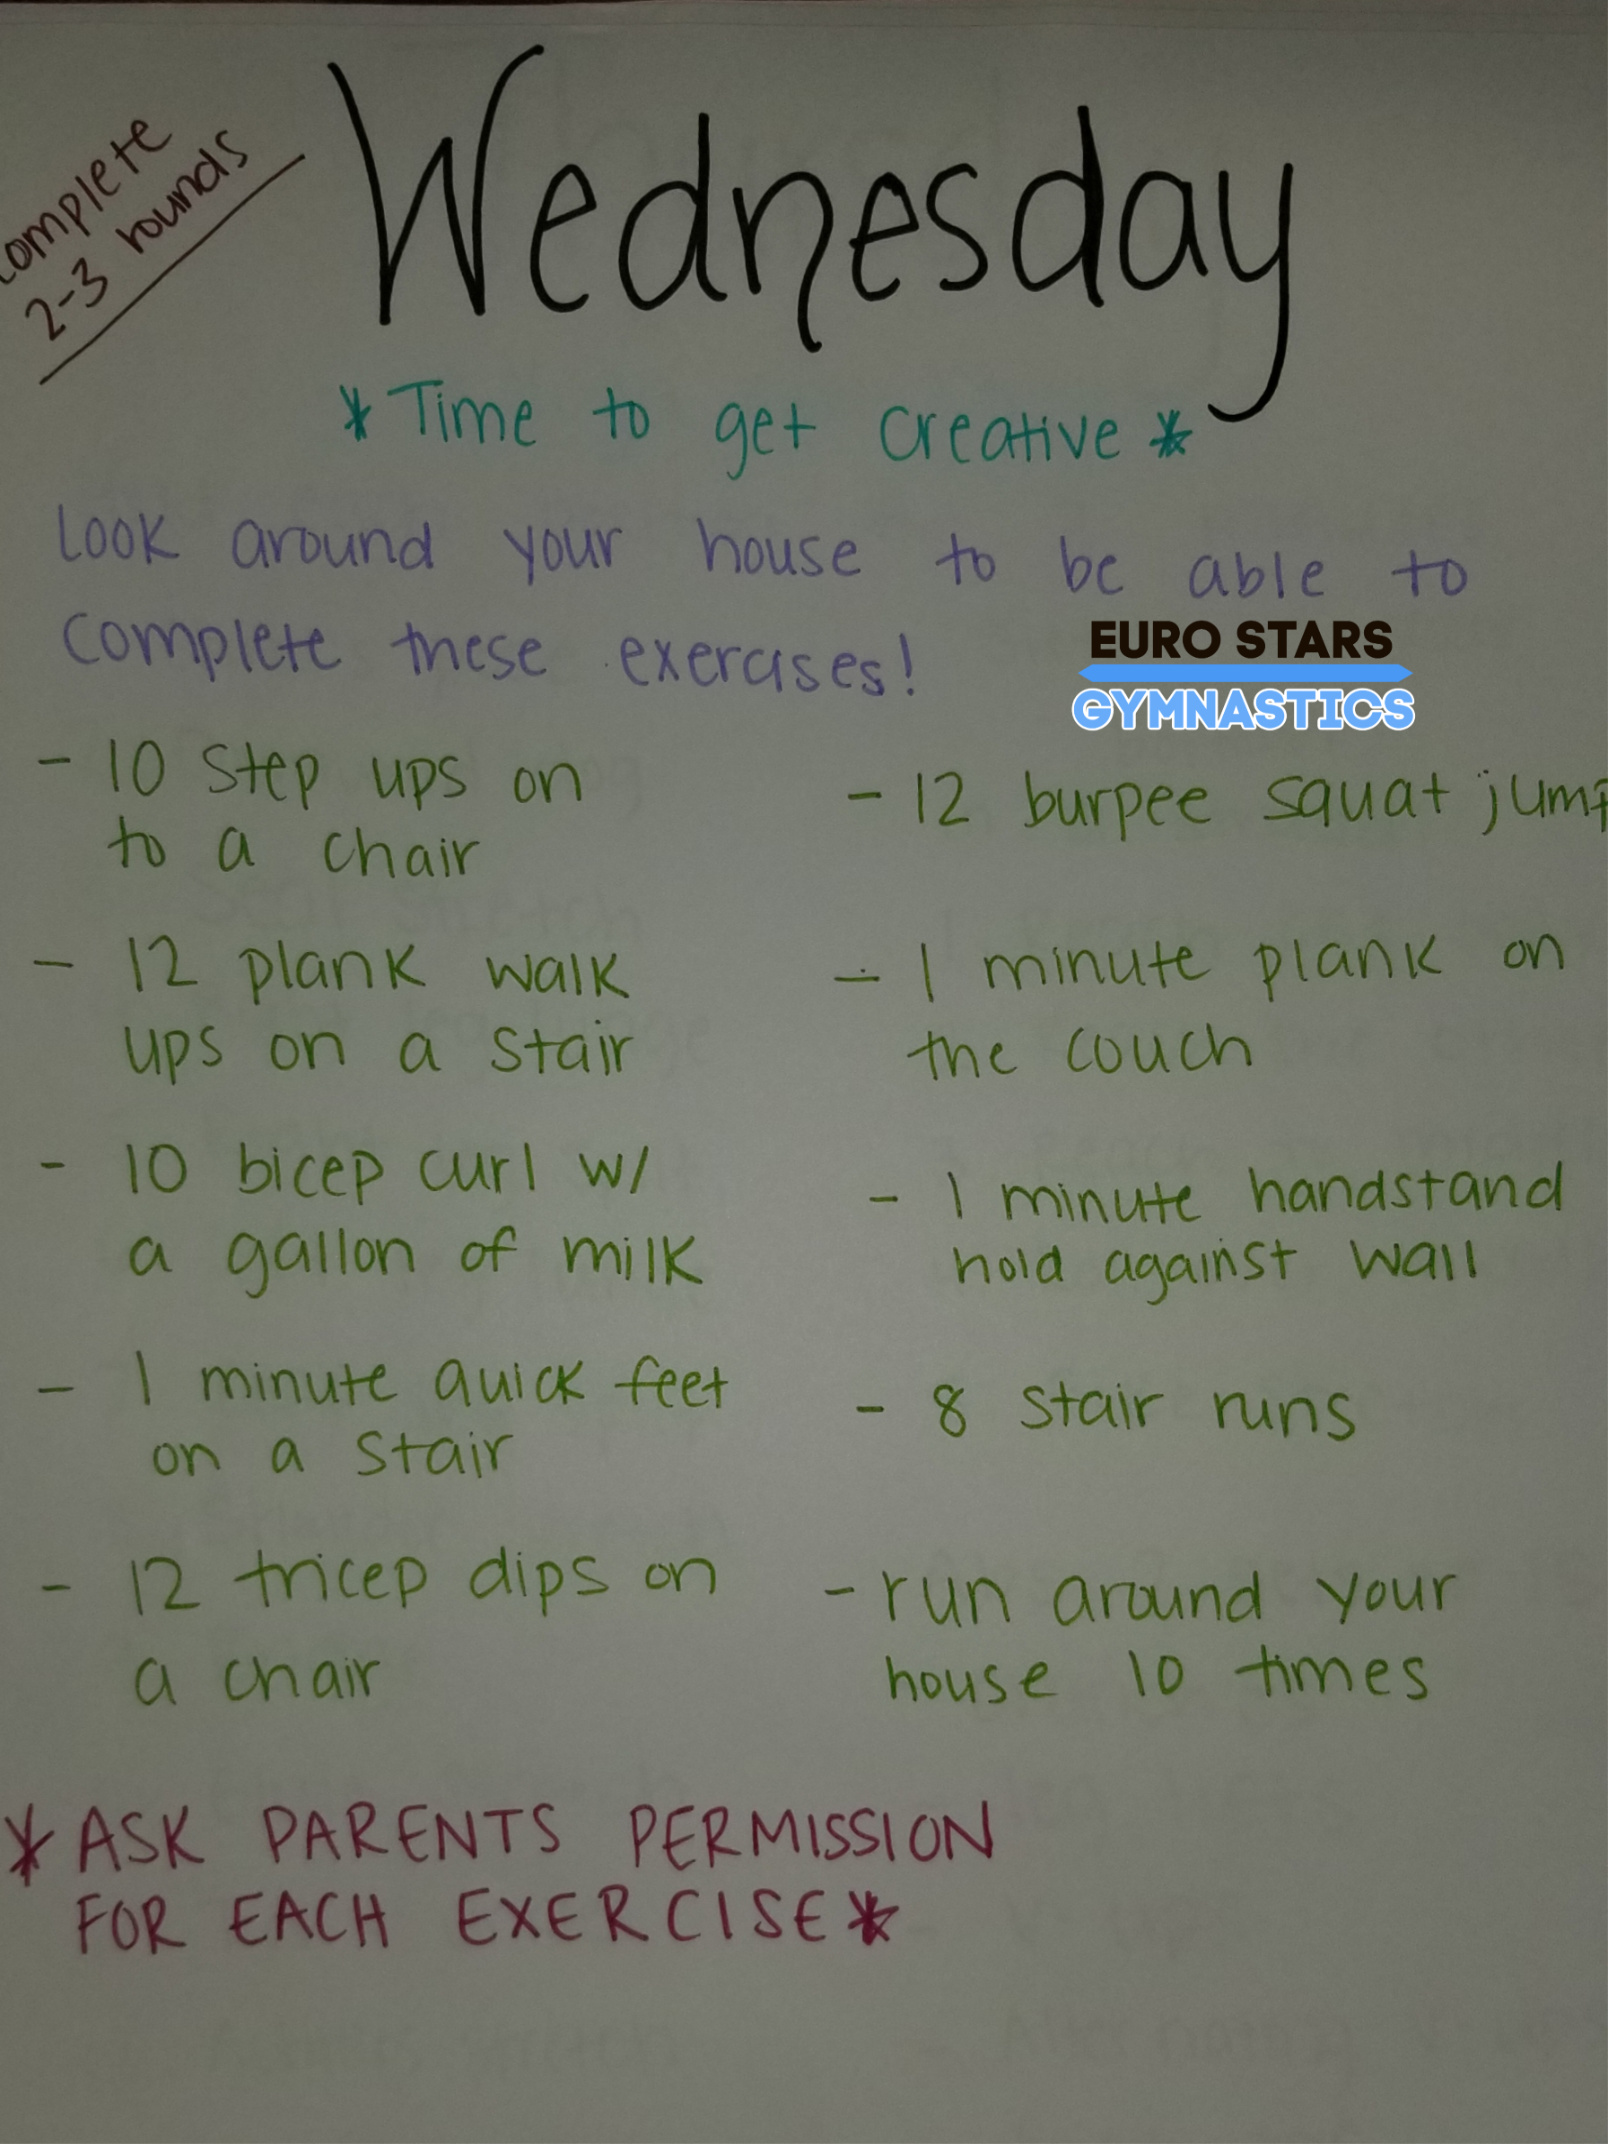 complete
2-3 rounds
Wednesday
*Time to get creative*
Look around your house to be able to
complete these exercises!
EURO STARS
GYMNASTICS
- 10 step ups on
to a chair
- 12 plank walk
ups on a stair
- 10 bicep curl w/
a gallon of milk
- 1 minute quick feet
on a stair
- 12 tricep dips on
a chair
- 12 burpee squat jump
- 1 minute plank on
the couch
- 1 minute handstand
hold against wall
- 8 stair runs
- run around your
house 10 times
* ASK PARENTS PERMISSION
FOR EACH EXERCISE*